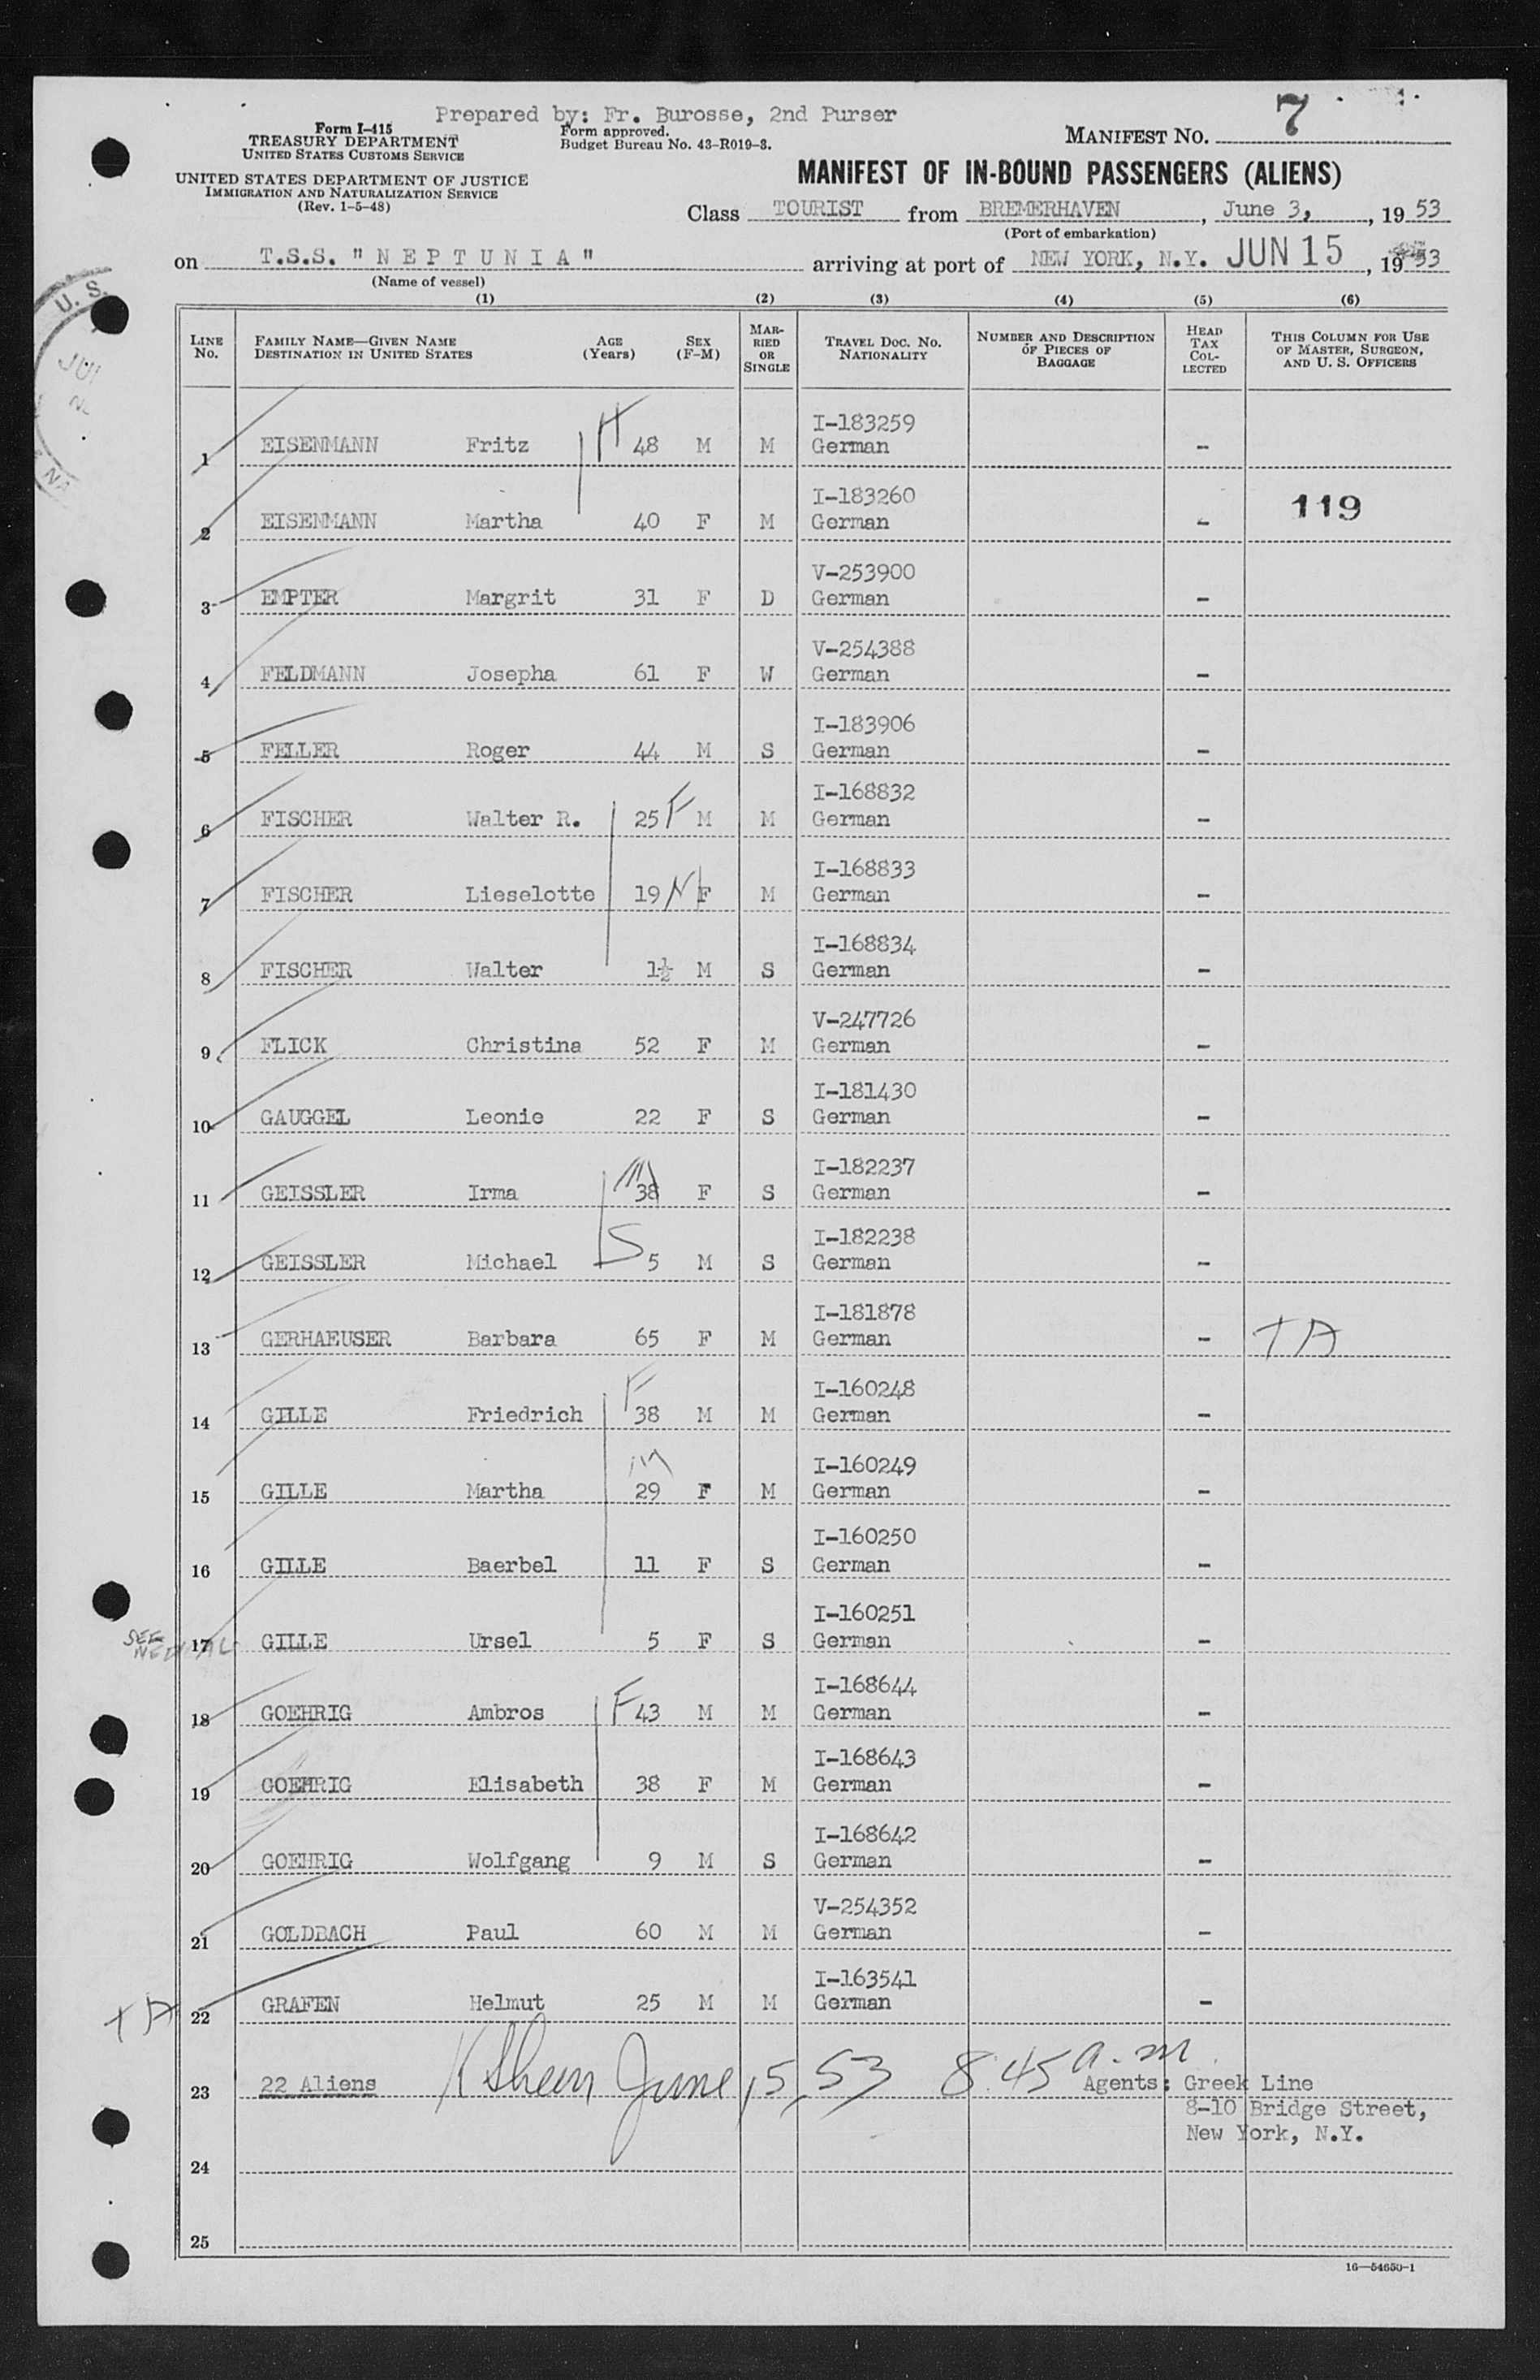 Prepared by: Fr. Burosse, 2nd Purser
Form I-415
TREASURY DEPARTMENT
UNITED STATES CUSTOMS SERVICE
Form approved.
Budget Bureau No. 43-R019-3.
MANIFEST NO. 7
UNITED STATES DEPARTMENT OF JUSTICE
IMMIGRATION AND NATURALIZATION SERVICE
(Rev. 1-5-48)
MANIFEST OF IN-BOUND PASSENGERS (ALIENS)
Class TOURIST from BREMERHAVEN, June 3, , 1953
(Port of embarkation)
on T.S.S. "NEPTUNIA" arriving at port of NEW YORK, N.Y. JUN 15, 1953
(Name of vessel)
U. S.
(1) (2) (3) (4) (5) (6)
LINE No. FAMILY NAME—GIVEN NAME DESTINATION IN UNITED STATES AGE (Years) SEX (F-M) MARRIED OR SINGLE TRAVEL DOC. NO. NATIONALITY NUMBER AND DESCRIPTION OF PIECES OF BAGGAGE HEAD TAX COLLECTED THIS COLUMN FOR USE OF MASTER, SURGEON, AND U. S. OFFICERS
I-183259
1 EISENMANN Fritz H 48 M M German -
I-183260
2 EISENMANN Martha 40 F M German - 119
V-253900
3 EMPTER Margrit 31 F D German -
V-254388
4 FELDMANN Josepha 61 F W German -
I-183906
5 FELLER Roger 44 M S German -
I-168832
6 FISCHER Walter R. 25 F M M German -
I-168833
7 FISCHER Lieselotte 19 F M German -
I-168834
8 FISCHER Walter 1½ M S German -
V-247726
9 FLICK Christina 52 F M German -
I-181430
10 GAUGGEL Leonie 22 F S German -
I-182237
11 GEISSLER Irma M 38 F S German -
I-182238
12 GEISSLER Michael S 5 M S German -
I-181878
13 GERHAEUSER Barbara 65 F M German - TA
I-160248
14 GILLE Friedrich F 38 M M German -
I-160249
15 GILLE Martha m 29 F M German -
I-160250
16 GILLE Baerbel 11 F S German -
I-160251
SEE MEDICAL 17 GILLE Ursel 5 F S German -
I-168644
18 GOEHRIG Ambros F 43 M M German -
I-168643
19 GOEHRIG Elisabeth 38 F M German -
I-168642
20 GOEHRIG Wolfgang 9 M S German -
V-254352
21 GOLDBACH Paul 60 M M German -
I-163541
TA 22 GRAFEN Helmut 25 M M German -
23 22 Aliens June 15, 53 8.45 a.m. Agents: Greek Line
8-10 Bridge Street,
New York, N.Y.
24
25
16—54650-1